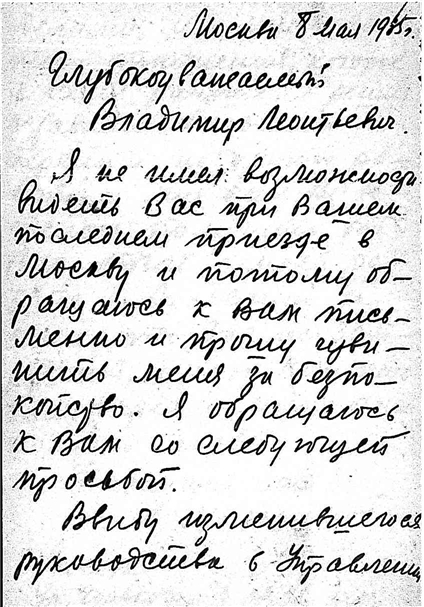 Москва 8 мая 1965г.
Глубокоуважаемый
Владимир Леонтьевич.
Я не имел возможности
видеть Вас при Вашем
последнем приезде в
Москву и потому об-
ращаюсь к Вам пись-
менно и прошу изви-
нить меня за безпо-
койство. Я обращаюсь
к Вам со следующей
просьбой.
Ввиду изменившегося
руководства в Управлении